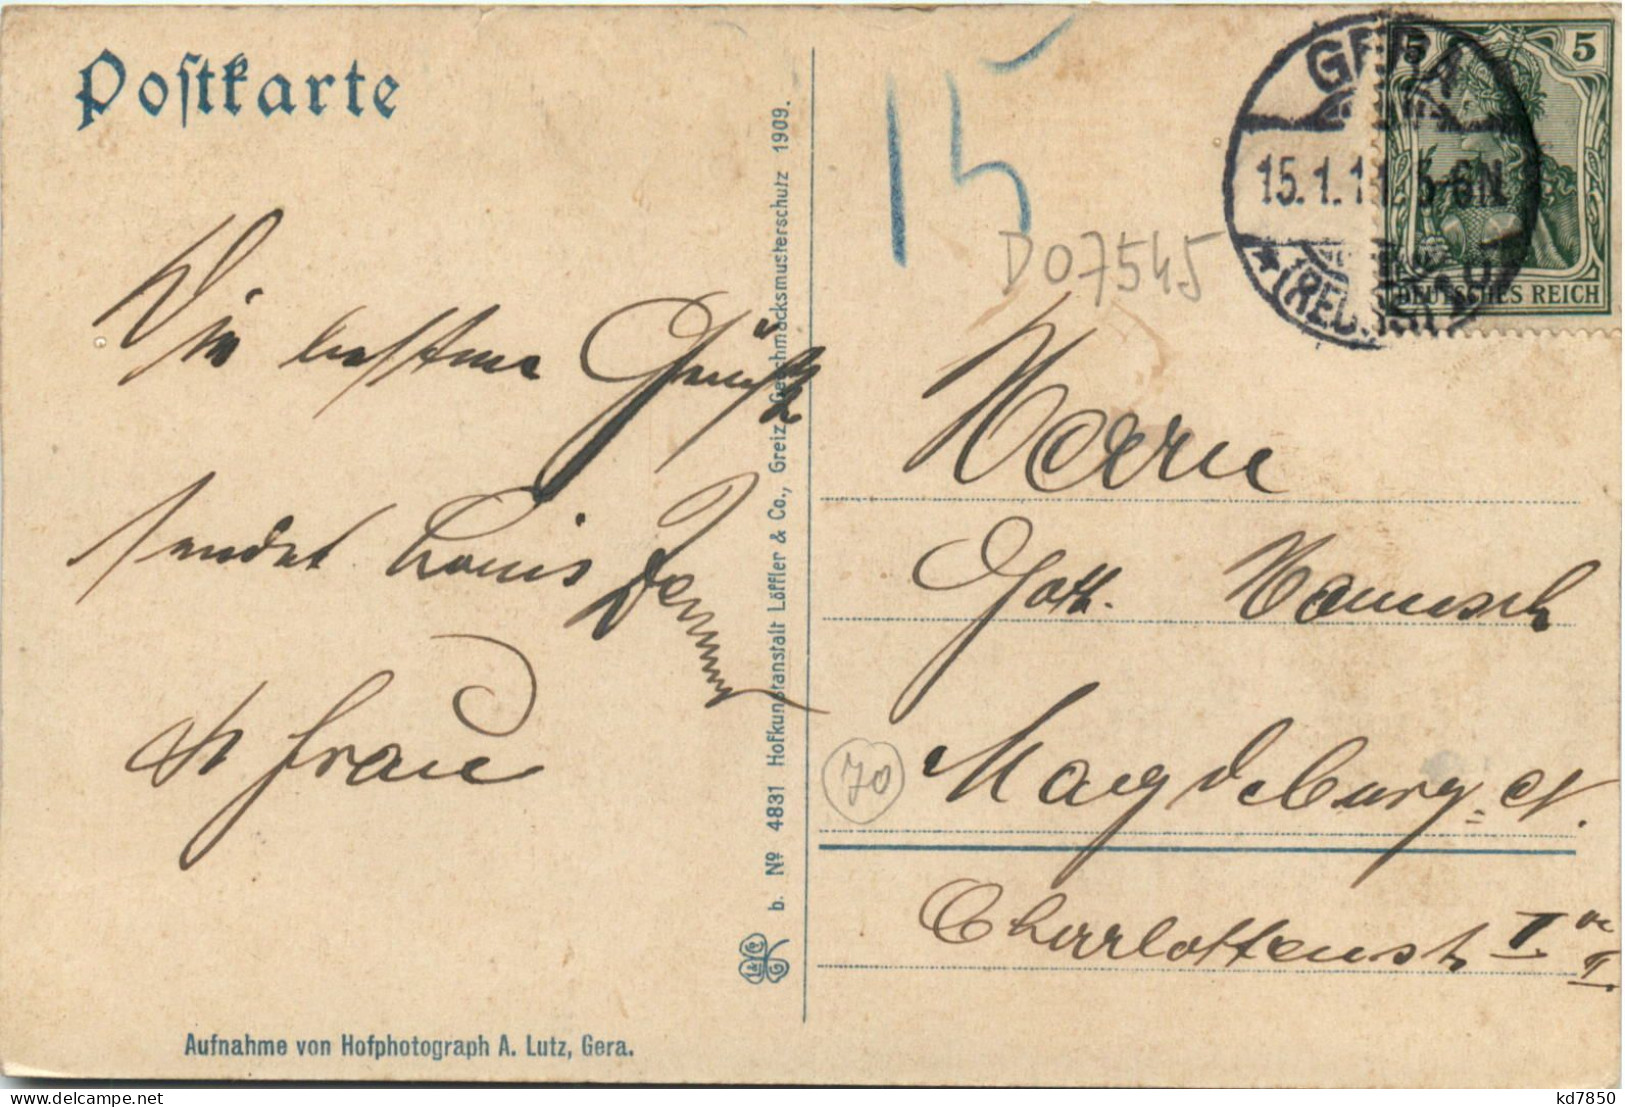 Postkarte
15
D07545
GERA
15.1.1 5-6N
(REUSS)
5 5
DEUTSCHES REICH
Die besten Grüße
sendet Louis
u Frau
Herrn
Gotth.
Magdeburg-N.
Charlottenst I
70
b. Nº 4831 Hofkunstanstalt Löffler & Co., Greiz. Geschmacksmusterschutz 1909.
L & Co G
Aufnahme von Hofphotograph A. Lutz, Gera.
kd7850